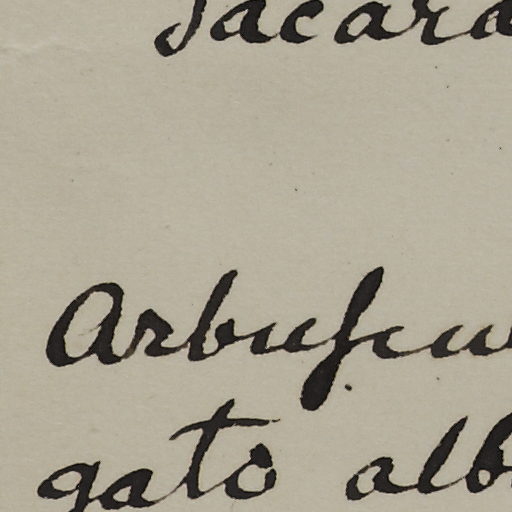 Jacara
Arbuscu
gato alb